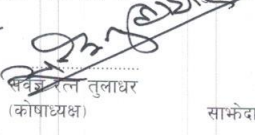 सर्वज्ञ रत्न तुलाधर
(कोषाध्यक्ष) साझेदा